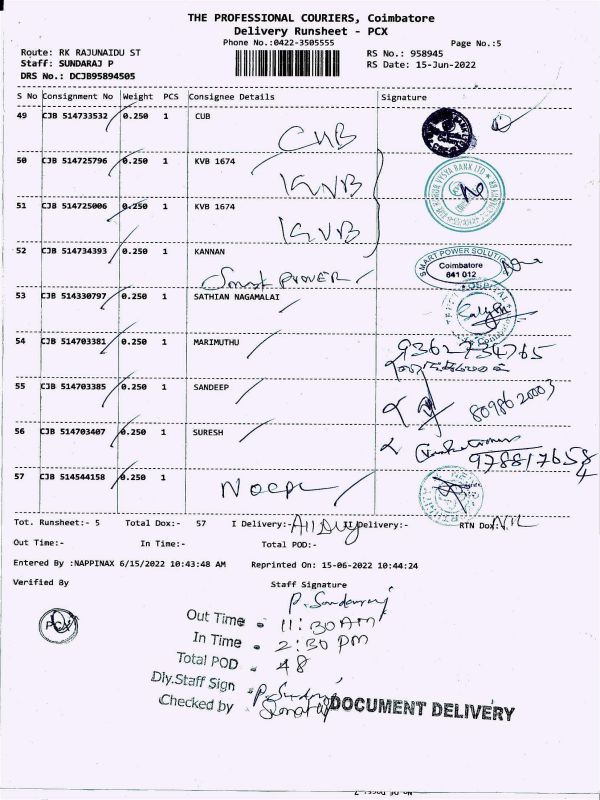 THE PROFESSIONAL COURIERS, Coimbatore
Delivery Runsheet - PCX
Phone No.:0422-3505555
Page No.:5
Route: RK RAJUNAIDU ST
RS No.: 958945
Staff: SUNDARAJ P
RS Date: 15-Jun-2022
DRS No.: DCJB95894505
S No Consignment No Weight PCS Consignee Details Signature
49 CJB 514733532 0.250 1 CUB
CUB
50 CJB 514725796 0.250 1 KVB 1674
KVB
51 CJB 514725006 0.250 1 KVB 1674
KVB
52 CJB 514734393 0.250 1 KANNAN
SMART POWER SOLUTION
Coimbatore
641 012
Smart POVER
53 CJB 514330797 0.250 1 SATHIAN NAGAMALAI
54 CJB 514703381 0.250 1 MARIMUTHU
9362734765
55 CJB 514703385 0.250 1 SANDEEP
8098620003
56 CJB 514703407 0.250 1 SURESH
57 CJB 514544158 0.250 1
Tot. Runsheet:- 5 Total Dox:- 57 I Delivery:- All Dly II Delivery:- RTN Dox:- NIL
Out Time:- In Time:- Total POD:-
Entered By :NAPPINAX 6/15/2022 10:43:48 AM Reprinted On: 15-06-2022 10:44:24
Verified By Staff Signature
P. Sundaraj
PCX
Out Time - 11:30 AM
In Time - 2:30 PM
Total POD - 48
Dly.Staff Sign - P. Sundaraj
Checked by
DOCUMENT DELIVERY